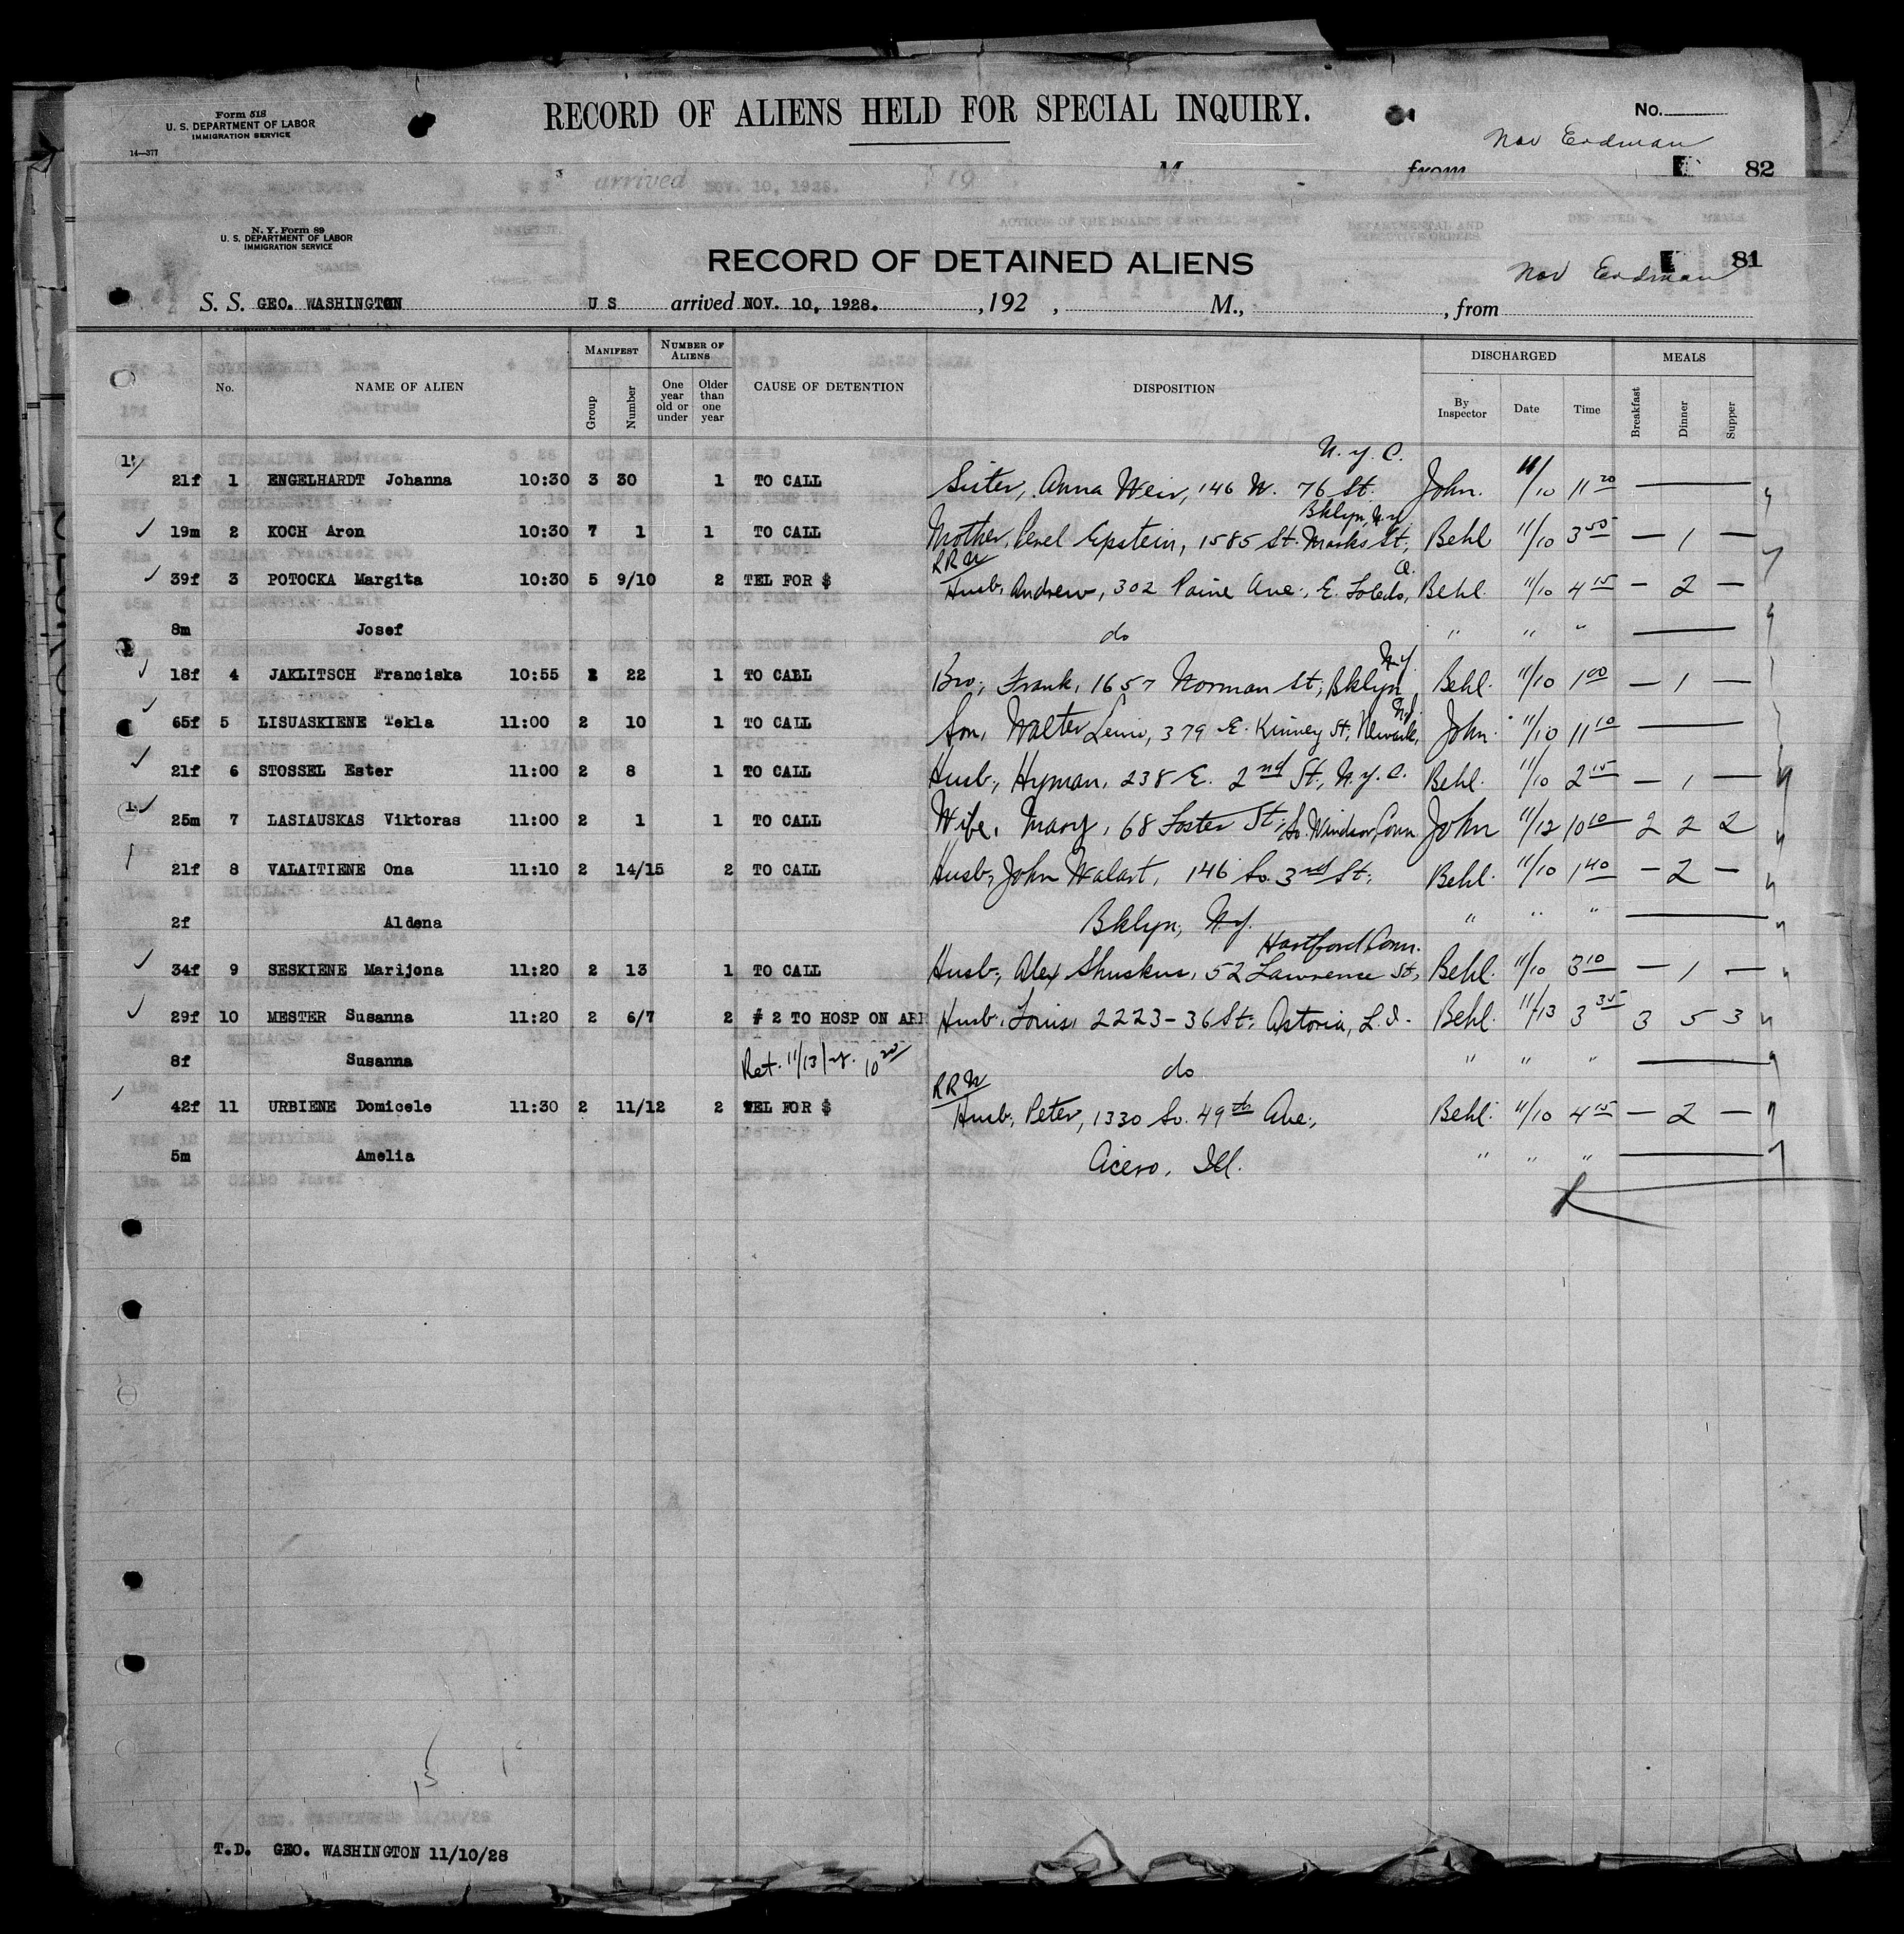 Form 518
U. S. DEPARTMENT OF LABOR
IMMIGRATION SERVICE
14—377
RECORD OF ALIENS HELD FOR SPECIAL INQUIRY.
No.
Nov Erdman
82
arrived NOV. 10, 1928. , 19 , M., from
N. Y. Form 89
U. S. DEPARTMENT OF LABOR
IMMIGRATION SERVICE
RECORD OF DETAINED ALIENS
81
Nov Erdman
S. S. GEO. WASHINGTON U S arrived NOV. 10, 1928. , 192 , M., , from
No. NAME OF ALIEN MANIFEST Group Number NUMBER OF ALIENS One year old or under Older than one year CAUSE OF DETENTION DISPOSITION DISCHARGED By Inspector Date Time MEALS Breakfast Dinner Supper
N. Y. C.
21f 1 ENGELHARDT Johanna 10:30 3 30 1 TO CALL Sister, Anna Weir, 146 W. 76 St. John. 11/10 11 20 —
Bklyn, N.Y.
19m 2 KOCH Aron 10:30 7 1 1 TO CALL Mother, Perel Epstein, 1585 St. Marks St, Behl 11/10 3 50 — 1 —
RRW
39f 3 POTOCKA Margita 10:30 5 9/10 2 TEL FOR $ Husb, Andrew, 302 Paine Ave., E. Toledo, O. Behl. 11/10 4 15 — 2 —
8m Josef do " " " —
18f 4 JAKLITSCH Franciska 10:55 2 22 1 TO CALL Bro; Frank, 1657 Norman St, Bklyn, N.Y. Behl. 11/10 1 00 — 1 —
65f 5 LISUASKIENE Tekla 11:00 2 10 1 TO CALL Son, Walter Lewis, 379 E. Kinney St, Newark, N.J. John. 11/10 11 10 —
21f 6 STOSSEL Ester 11:00 2 8 1 TO CALL Husb, Hyman, 238 E. 2nd St, N.Y.C. Behl. 11/10 2 15 — 1 —
25m 7 LASIAUSKAS Viktoras 11:00 2 1 1 TO CALL Wife, Mary, 68 Foster St; So. Windsor, Conn. John 11/12 10 10 2 2 2
21f 8 VALAITIENE Ona 11:10 2 14/15 2 TO CALL Husb, John Walart, 146 So. 3rd St; Behl. 11/10 1 40 — 2 —
2f Aldena Bklyn, N.Y. " " " —
Hartford Conn.
34f 9 SESKIENE Marijona 11:20 2 13 1 TO CALL Husb, Alex Shuskus, 52 Lawrence St, Behl. 11/10 3 10 — 1 —
29f 10 MESTER Susanna 11:20 2 6/7 2 # 2 TO HOSP ON ARR Husb, Louis, 2223-36 St, Astoria, L. I. Behl. 11/13 3 35 3 5 3
8f Susanna Ret. 11/13 10 20 do " " " —
RRW
42f 11 URBIENE Domicele 11:30 2 11/12 2 TEL FOR $ Husb, Peter, 1330 So. 49th Ave, Behl. 11/10 4 15 — 2 —
5m Amelia Cicero, Ill. " " " —
15
T.D. GEO. WASHINGTON 11/10/28